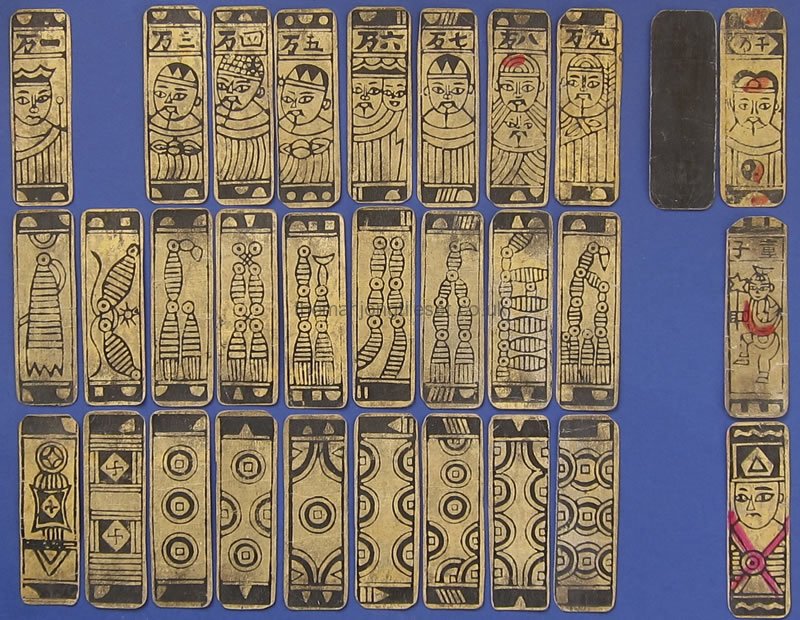 一万
三万
四万
五万
六万
七万
八万
九万
千万
童子